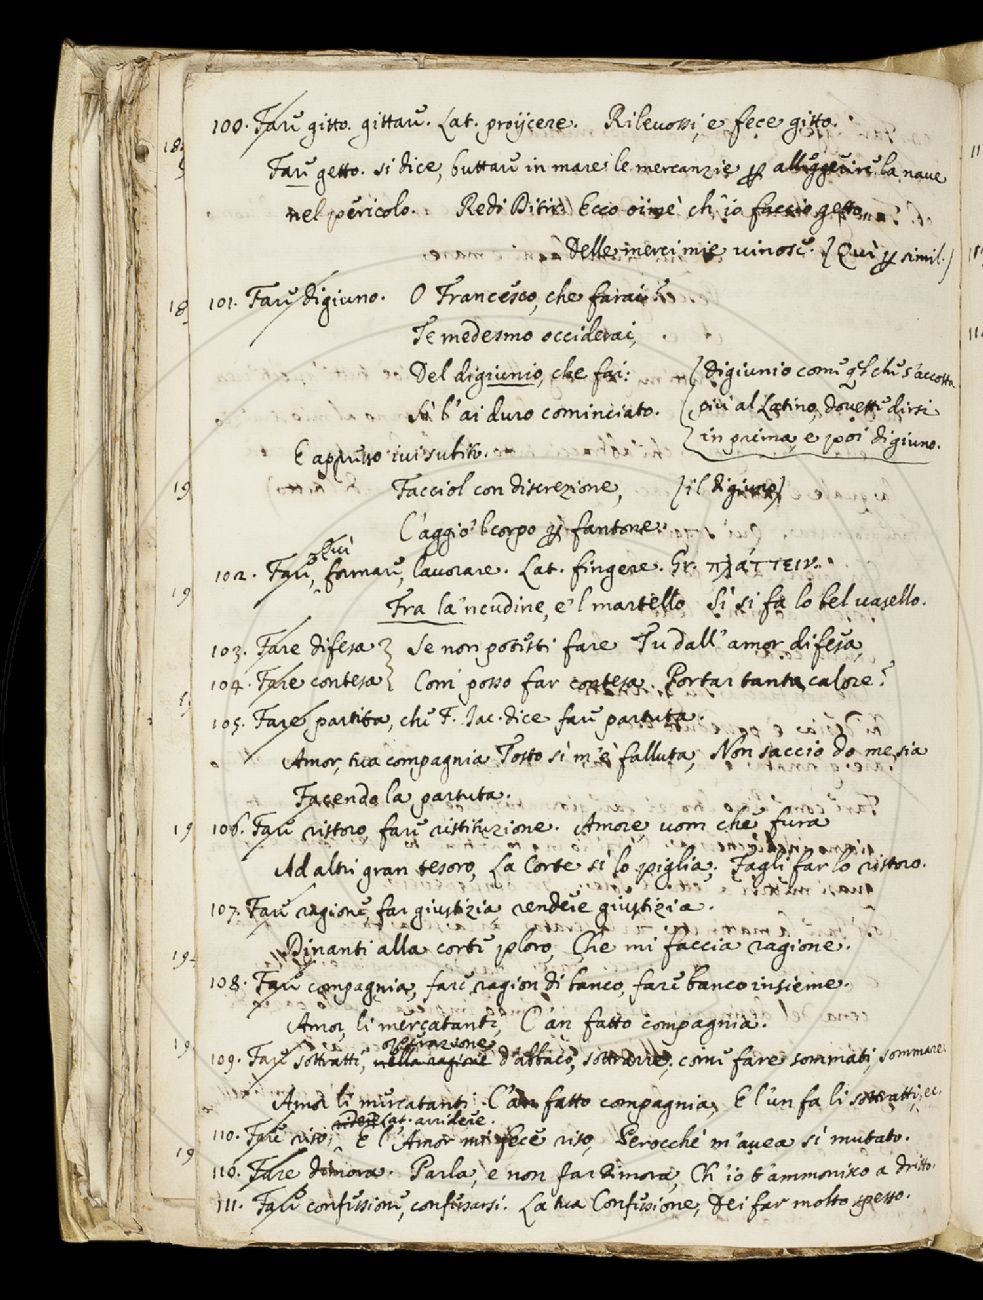 100. Fare gitto. gittare. Lat. proijcere. Rilevossi, e fece gitto.
Fare getto. si dice, buttare in mare le mercanzie per alleggerire la nave
nel pericolo. Redi Ditir. Ecco oimè ch'io faccio getto
Delle merci mie vinose. [Qui per simil.]
101. Fare digiuno. O Francesco, che farai?
Te medesmo occiderai,
Del digiunio, che fai:
Sì l'ai duro cominciato.
(digiunio come quel che s'accosta
più al Latino, dovette dirsi
in prima, e poi digiuno.
E appresso ivi subito.
Facciol con discrezione, [il digiuno]
C'aggio 'l corpo per fantone.
102. Fare, qui formare, lavorare. Lat. fingere. Gr. πλάττειν.
Fra la 'ncudine, e 'l martello Sì si fa lo bel vasello.
103. Fare difesa } Se non potesti fare Tu dall'amor difesa,
104. Fare contesa } Com' posso far contesa Portar tanto calore?
105. Fare partita, che F. Jac. dice fare partuta.
Amor, tua compagnia Tosto sì m'è falluta, Non saccio do me sia
Facendo la partuta.
106. Fare ristoro, fare ristituzione. Amore uom che fura
Ad altri gran tesoro, La Corte sì lo piglia, Fagli far lo ristoro.
107. Fare ragione, far giustizia rendere giustizia.
Dinanti alla corte ploro, Che mi faccia ragione.
108. Fare compagnia, fare ragion di banco, fare banco insieme.
Amor, li mercatanti, C'an fatto compagnia.
109. Fare sottratti, nella ragione operazione d'abbaco, sottrarre, come fare sommati, sommare.
Amor li mercatanti C'an fatto compagnia, E l'un fa li sottratti, ec.
110. Fare riso, ridere Lat. arridere. E l'Amor mi fece riso, Perocché m'avea sì mutato.
110. Fare dimora. Parla, e non far dimora, Ch'io t'ammonisco a dritto.
111. Fare confessione, confessarsi. La tua Confessione, Dei far molto spesso.